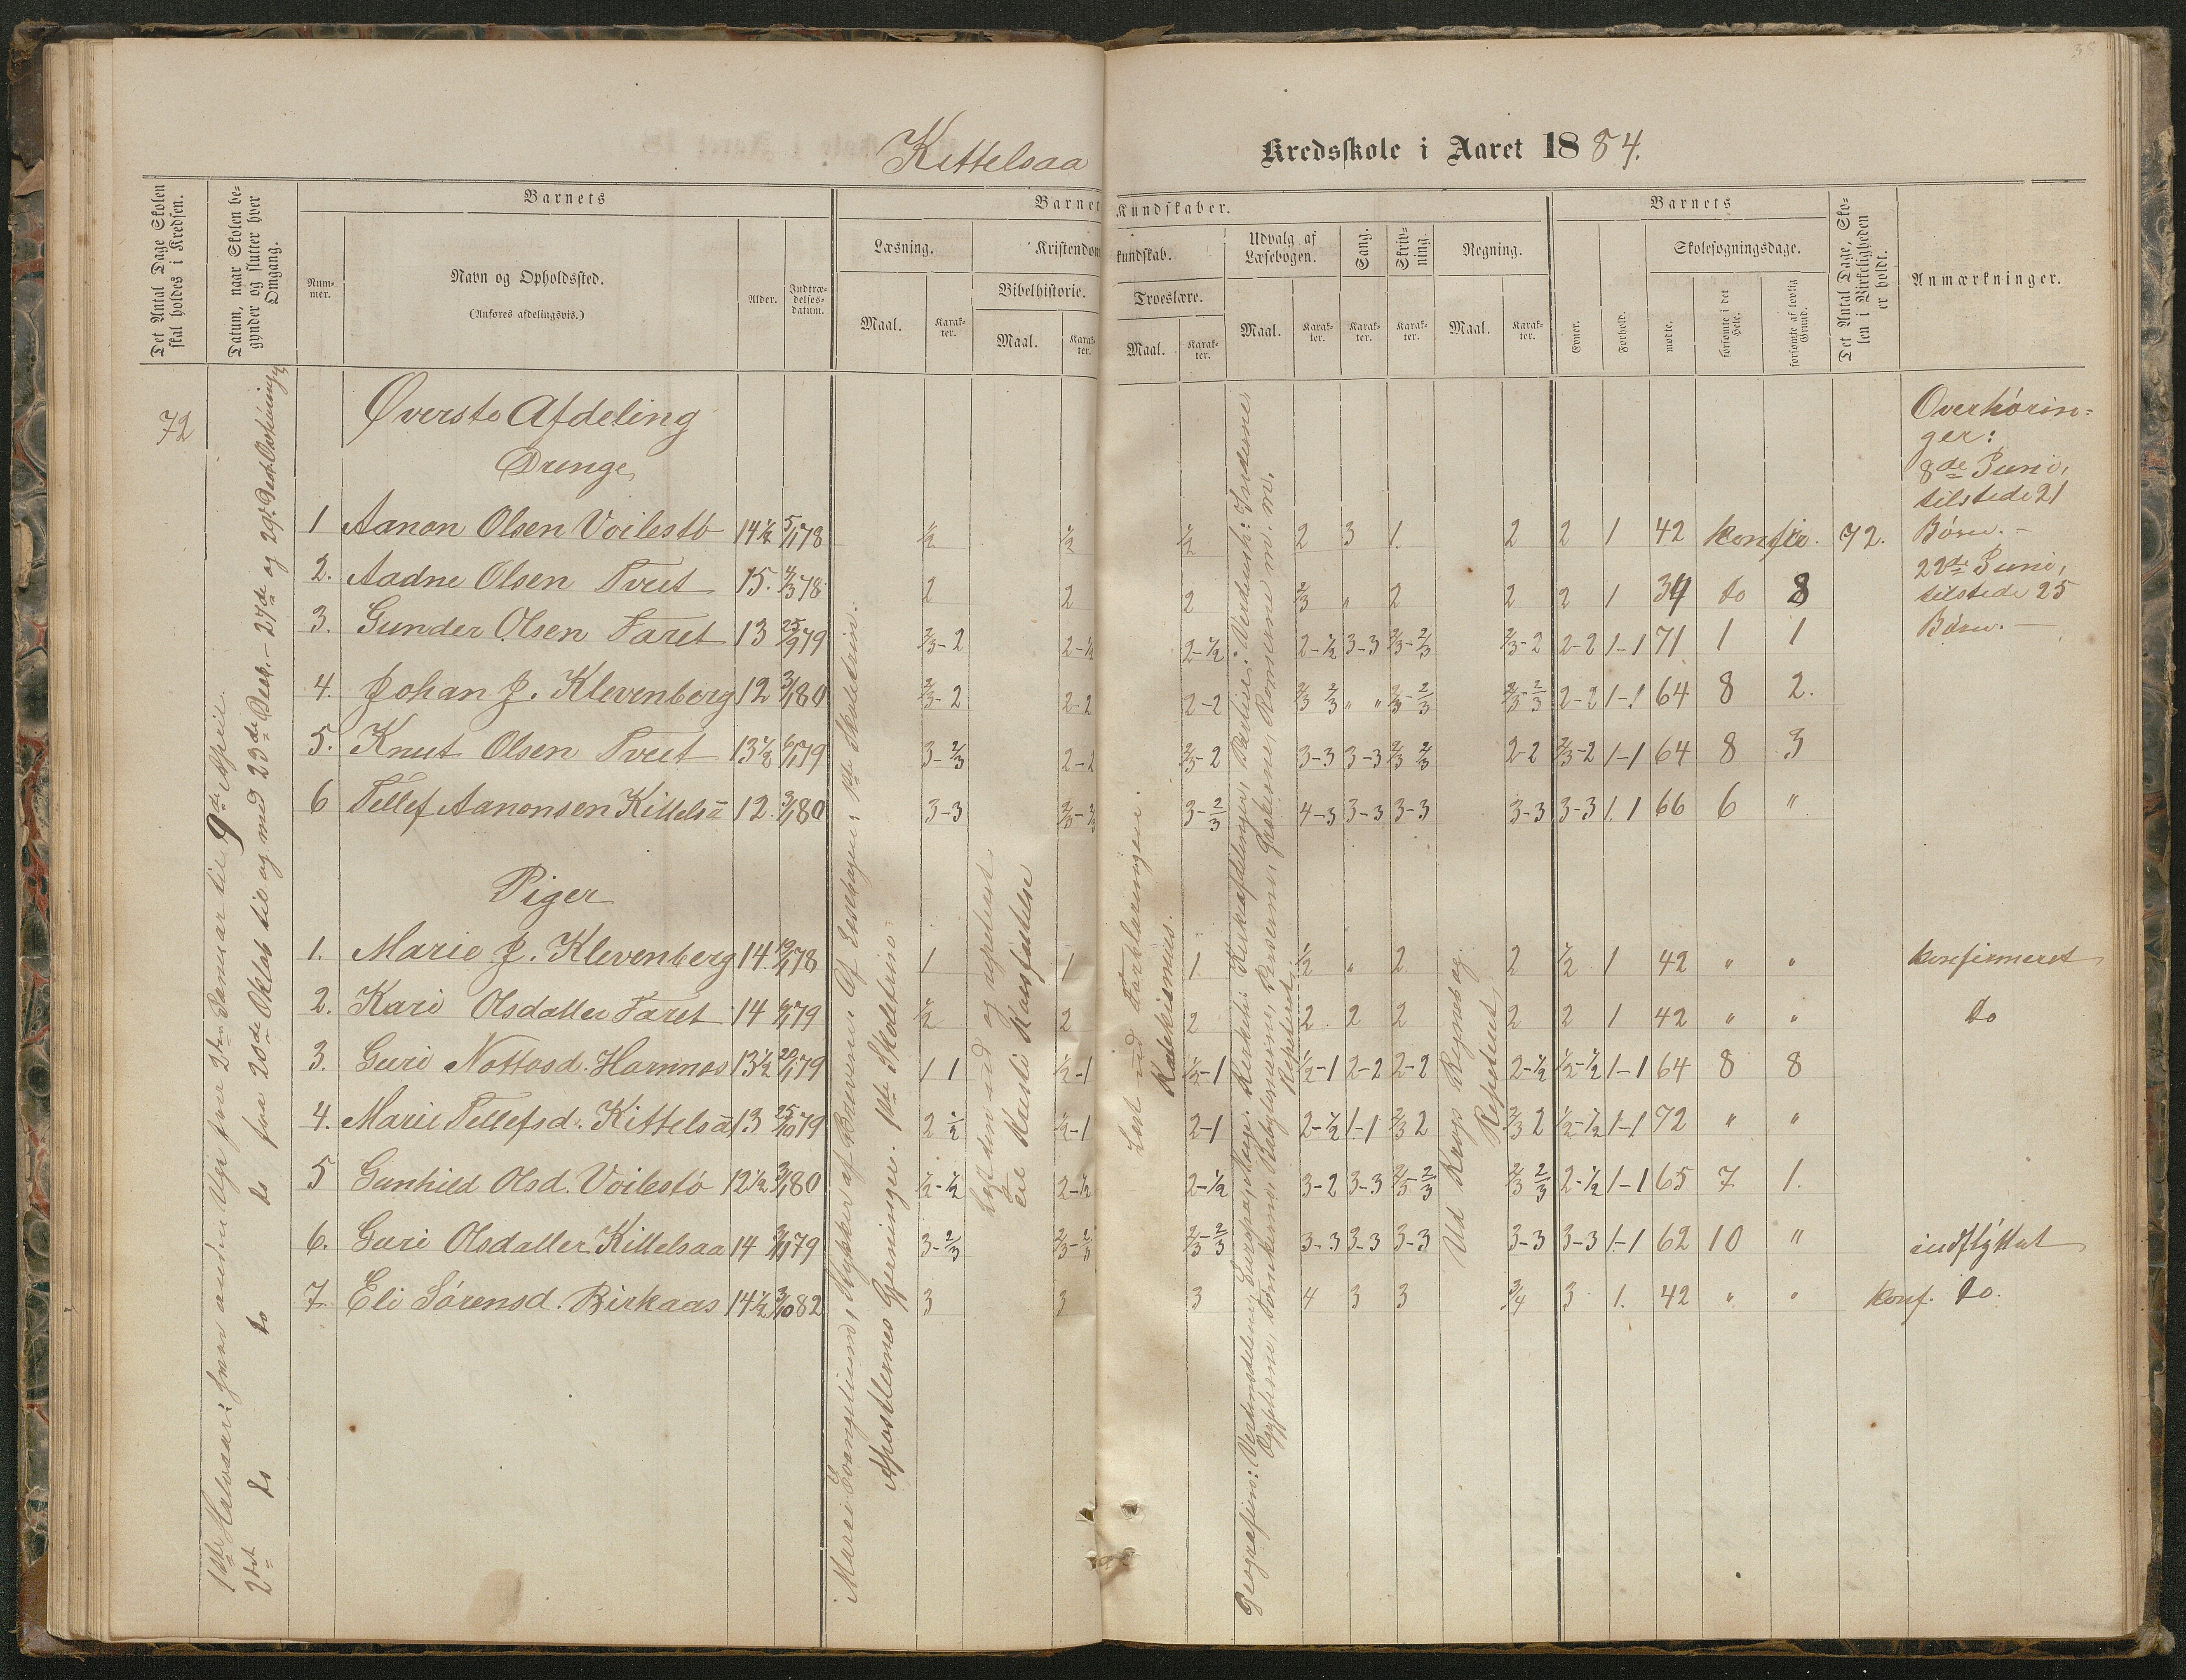 38
Kittelsaa Kredsskole i Aaret 1884.
Det Antal Dage Skolen skal holdes i Kredsen.
Datum, naar Skolen begynder og slutter hver Omgang.
Barnets
Nummer.
Navn og Opholdssted.
(Anføres afdelingsvis.)
Alder.
Indtrædelsesdatum.
Barnets Kundskaber.
Læsning.
Maal.
Karakter.
Kristendomskundskab.
Bibelhistorie.
Maal.
Karakter.
Troeslære.
Maal.
Karakter.
Udvalg af Læsebogen.
Maal.
Karakter.
Sang.
Karakter.
Skrivning.
Karakter.
Regning.
Maal.
Karakter.
Barnets
Evner.
Forhold.
Skolesøgningsdage.
mødte.
forsømte i det Hele.
forsømte af lovlig Grund.
Det Antal Dage, Skolen i Virkeligheden er holdt.
Anmærkninger.
72
Øverste Afdeling
Drenge
1 Aanon Olsen Voilestø 14½ 5/1 78 ½ ½ ½ 2 3 1. 2 2 1 42 konfir. 72.
2. Aadne Olsen Tveit 15. 4/3 78 2 2 2 2/3 " 2 2 2 1 34 do 8
3. Gunder Olsen Faret 13 25/9 79 2/3-2 2-½ 2-½ 2-½ 3-3 2/3-2/3 2/3-2 2-2 1-1 71 1 1
4. Johan J. Klevenberg 12 3/1 80 2/3-2 2-2 2-2 2/3 2/3 " " 2/3-2/3 2/3-2/3 2-2 1-1 64 8 2.
5. Knut Olsen Tveit 13½ 6/1 79 3-2/3 2-2 2/3-2 3-3 3-3 2/3 2/3 2-2 2/3-2 1-1 64 8 3
6 Tellef Aanonsen Kittelså 12. 3/1 80 3-3 2/3-2/3 3-2/3 4-3 3-3 3-3 3-3 3-3 1.1 66 6 "
Piger
1. Marie J. Klevenberg 14. 19/1 78 1 1 1. ½ " 2 2 ½ 1 42 " " konfirmeret
2. Kari Olsdatter Faret 14 6/1 79 ½ 2 2 2. 2 2 2 2 1 42 " " do
3. Guri Nottosd. Hamnes 13½ 20/1 79 1 1 ½-1 ½-1 ½-1 2-2 2-2 2-½ ½-½ 1-1 64 8 8
4. Marie Tellefsd. Kittelså 13 25/10 79 2 ½ ½-1 2-1 2-½ 1-1 2/3 2 2/3 2 ½-½ 1-1 72 " "
5 Gunhild Olsd. Voilestø 12½ 3/1 80 ½-½ 2-½ 2-½ 3-2 3-3 2/3-2/3 2/3 2/3 2-½ 1-1 65 7 1.
6. Guri Olsdatter Kittelsaa 14 3/11 79 3-2/3 2/3-2/3 2/3-2/3 3-3 3-3 3-3 3-3 3-3 1-1 62 10 " indflyttet
7. Eli Sørensd. Birkaas 14½ 3/10 82 3 3 3 4 3 3 3/4 3 1. 42 " " konf. do.
Overhørin-
ger:
8de Juni,
tilstede 21
Børn. -
22de Juni,
tilstede 25
Børn. -
1ste Halvaar: hver anden Uge fra 2den Januar til 9de April.
2det do do do fra 20de Oktob til og med 23de Decb. - 27de og 29de
af Læsebogen: 1ste Skoletrin.
Apostlernes Gjerninger. 1ste Skoletrin
Læst ud og repeteret
til Kristi Himmelfart
Læst ud Forklaringen.
Katekismus.
Repeteret
Ud Regnebog
Repeteret